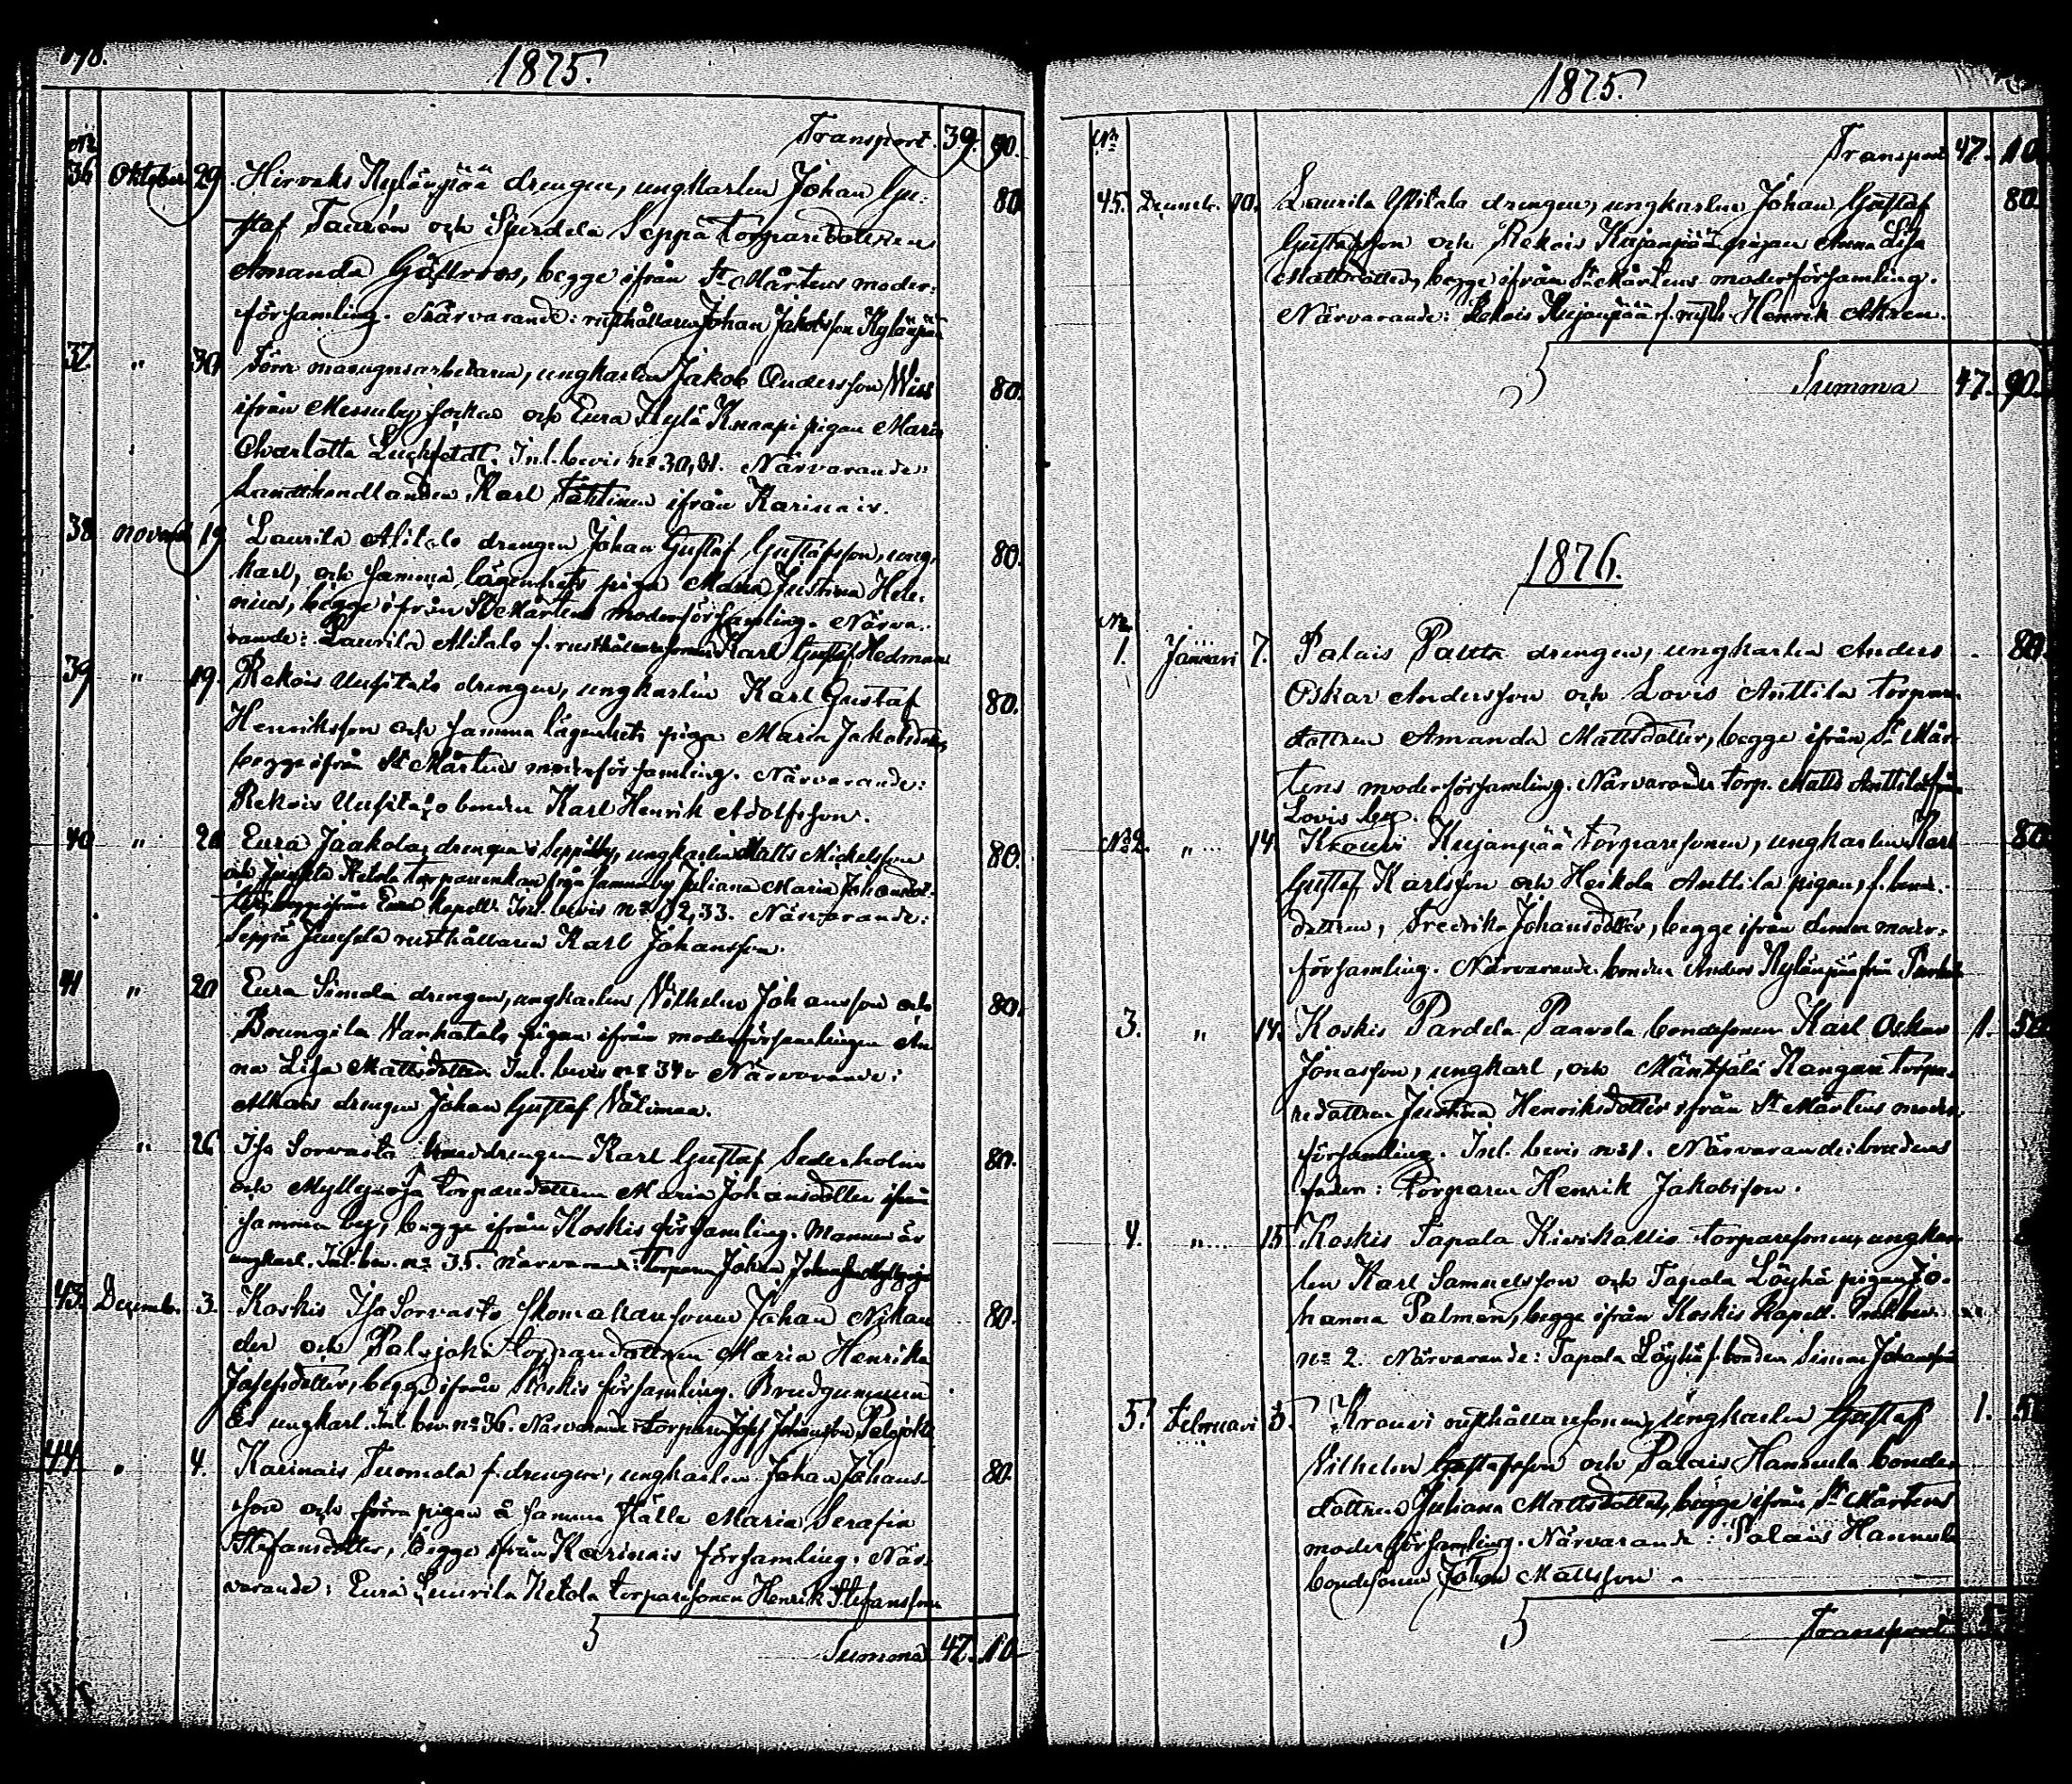 1875.
Transport. 39. 90.
No
36 Oktober 29. Hirvaks Kylänpää drengen, ungkarlen Johan Gu- 80
staf Taurén och Sjurdela Seppä torparedottren
Amanda Gästroos, begge ifrån St Mårtens moder-
församling. Närvarande: rusthållaren Johan Jakobsson Kylänpää
37. " 30. Förra masugnsarbetaren, ungkarlen Jakob Andersson Wiss 80.
ifrån Messuby socken och Eura Kylä Knaapi pigan Maria
Charlotta. Inl. bevis No 30, 31. Närvarande:
Landthandlanden Karl Tähtinen ifrån Karinais.
38. Novemb. 19. Laurila Alitalo drengen Johan Gustaf Gustafsson, ung- 80.
karl, och samma lägenhets piga Maria Justina Hele-
nius, begge ifrån St Mårtens moderförsamling. Närva-
rande: Laurila Alitalo f. rusthållaresonen Karl Gustaf Hedman
39 " 19. Rekois Uusitalo drengen, ungkarlen Karl Gustaf 80.
Henriksson och samma lägenhets piga Maria Jakobsdotter,
begge ifrån St Mårtens moderförsamling. Närvarande:
Rekois Uusitalo bonden Karl Henrik Adolfsson.
40 " 20 Eura Jaakola drengen i Seppä by, ungkarlen Matts Michelsson 80.
och Ketola torpareenkan från samma by Juliana Maria Johansdot-
ter, begge ifrån Eura kapell. Inl. bevis No 32, 33. Närvarande:
Seppä rusthållaren Karl Johansson.
41 " 20 Eura Simola drengen, ungkarlen Wilhelm Johansson och 80.
Brungila Vanhatalo pigan ifrån moderförsamlingen An-
na Lisa Mattsdotter. Inl. bevis No 34. Närvarande:
drengen Johan Gustaf Välimaa.
" 26 Iso Sorvasto drengen Karl Gustaf Sederholm 80.
och Myllyoja torparedottren Maria Johansdotter ifrån
samma by, begge ifrån Koskis församling. Mannen är
ungkarl. Inl. bev. No 35. Närvarande: Torparen Johan
43. Decemb. 3. Koskis Iso Sorvasto skomakaresonen Johan Nikan- 80.
der och Palojoki torparedottren Maria Henrika
Josefsdotter, begge ifrån Koskis församling. Brudgummen
är ungkarl. Inl. bev. No 36. Närvarande: torparen Josef Johansson Palojoki
44. " 4. Karinais Tuomola f. drengen, ungkarlen Johan Johans- 80.
son och förra pigan å samma ställe Maria Serafia
Stefansdotter, begge ifrån Karinais församling. När-
varande: Eura Laurila Ketola torparesonen Henrik Stefansson
Summa 47. 10
1875.
No
Transport 47. 10
45. Decemb. 10. Laurila Alitalo drengen, ungkarlen Johan Gustaf 80.
Gustafsson och Rekois Kujanpää pigan Anna Lisa
Mattsdotter, begge ifrån St Mårtens moderförsamling.
Närvarande: Rekois Kujanpää f. rusth. Henrik
Summa 47. 90.
1876.
No
1. Januari 7. Palais Pautta drengen, ungkarlen Anders 80.
Oskar Andersson och Lovis Anttila torpare-
dottren Amanda Mattsdotter, begge ifrån St Mår-
tens moderförsamling. Närvarande torp. Matts Anttila från
Lovis by.
No 2. " 14. Krouvi Kujanpää torparesonen, ungkarlen Karl 80.
Gustaf Karlsson och Heikola Anttila pigan, f. bonde-
dottren, Fredrika Johansdotter, begge ifrån denna moder-
församling. Närvarande bonden Anders Kylänpää från
3. " 14. Koskis Pardela Paavola bondesonen Karl Oskar 1. 50
Jonasson, ungkarl, och Mäntsälä Kangare torpa-
redottren Justina Henriksdotter ifrån St Mårtens moder-
församling. Inl. bevis No 1. Närvarande: brudens
fader: Torparen Henrik Jakobsson.
4. " 15 Koskis Tapala Kivikallio torparesonen, ungkar-
len Karl Samuelsson och Tapala Löyhä pigan Jo-
hanna Palmén, begge ifrån Koskis kapell. Inl. bev.
No 2. Närvarande: Tapala Löyhä f. bonden Simon Johansson
5. Februari 5. Krouvi rusthållaresonen, ungkarlen Gustaf 1. 50
Wilhelm Gustafsson och Palais Hannula bonde-
dottren Juliana Mattsdotter, begge ifrån St Mårtens
moderförsamling. Närvarande: Palais Hannula
bondesonen Johan Mattsson
Transport